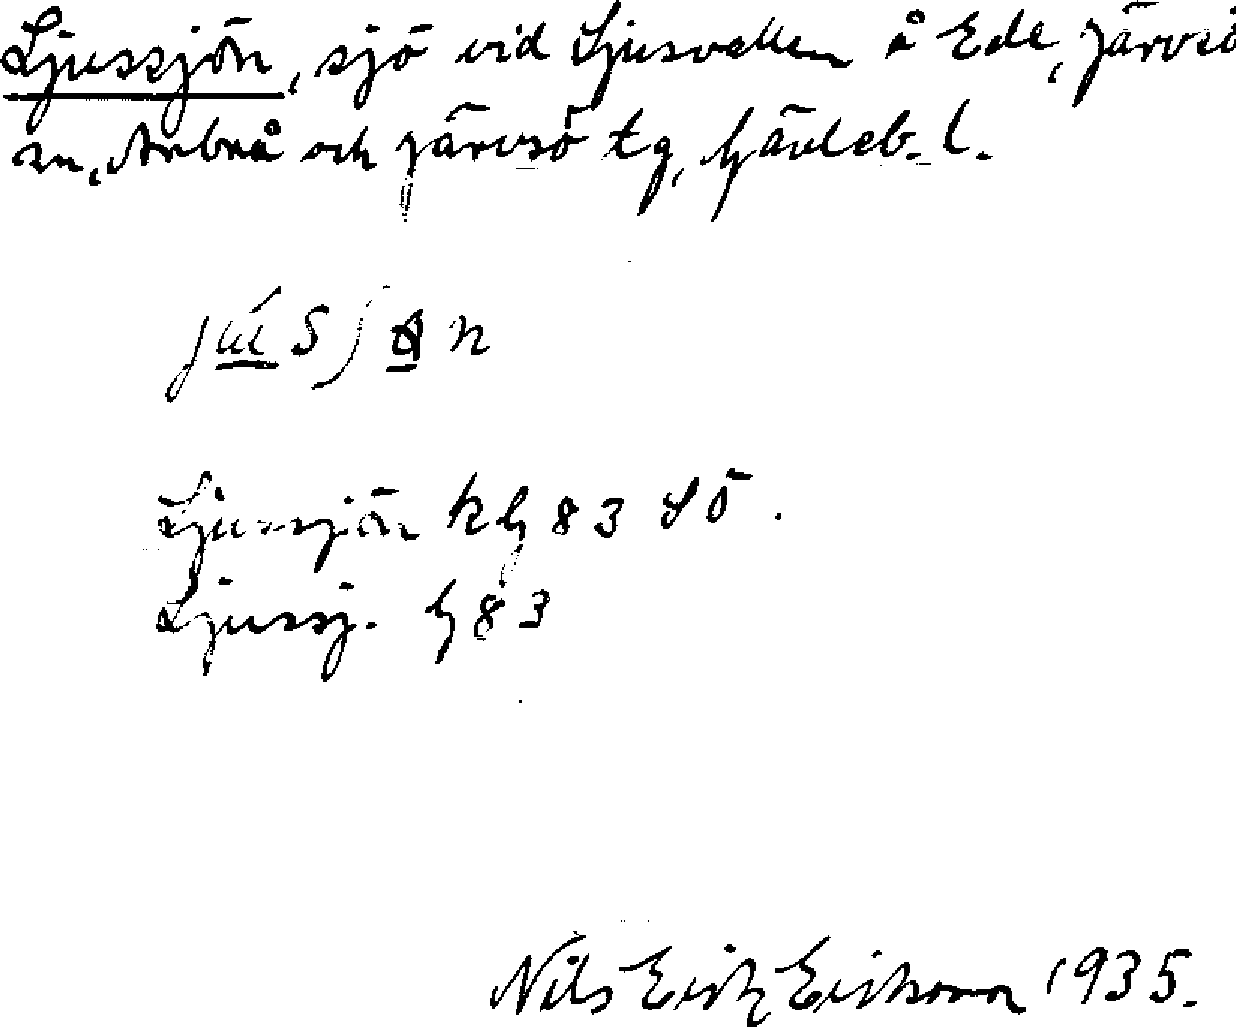 Ljussjön, sjö vid Ljusvallen å Ede, Järvsö
sn, Arbrå och Järvsö tg, Gävleb. l.
Ljussjön kG 83 SÖ.
Ljussj. G 83
Nils Erik Eriksson 1935.